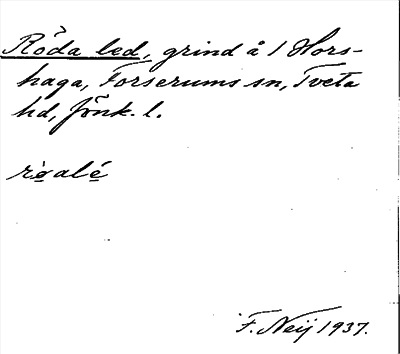 Röda led, grind å 1 Hors-
haga, Forserums sn, Tveta
hd, Jönk. l.
rò̲alé̲
F. Neij 1937.